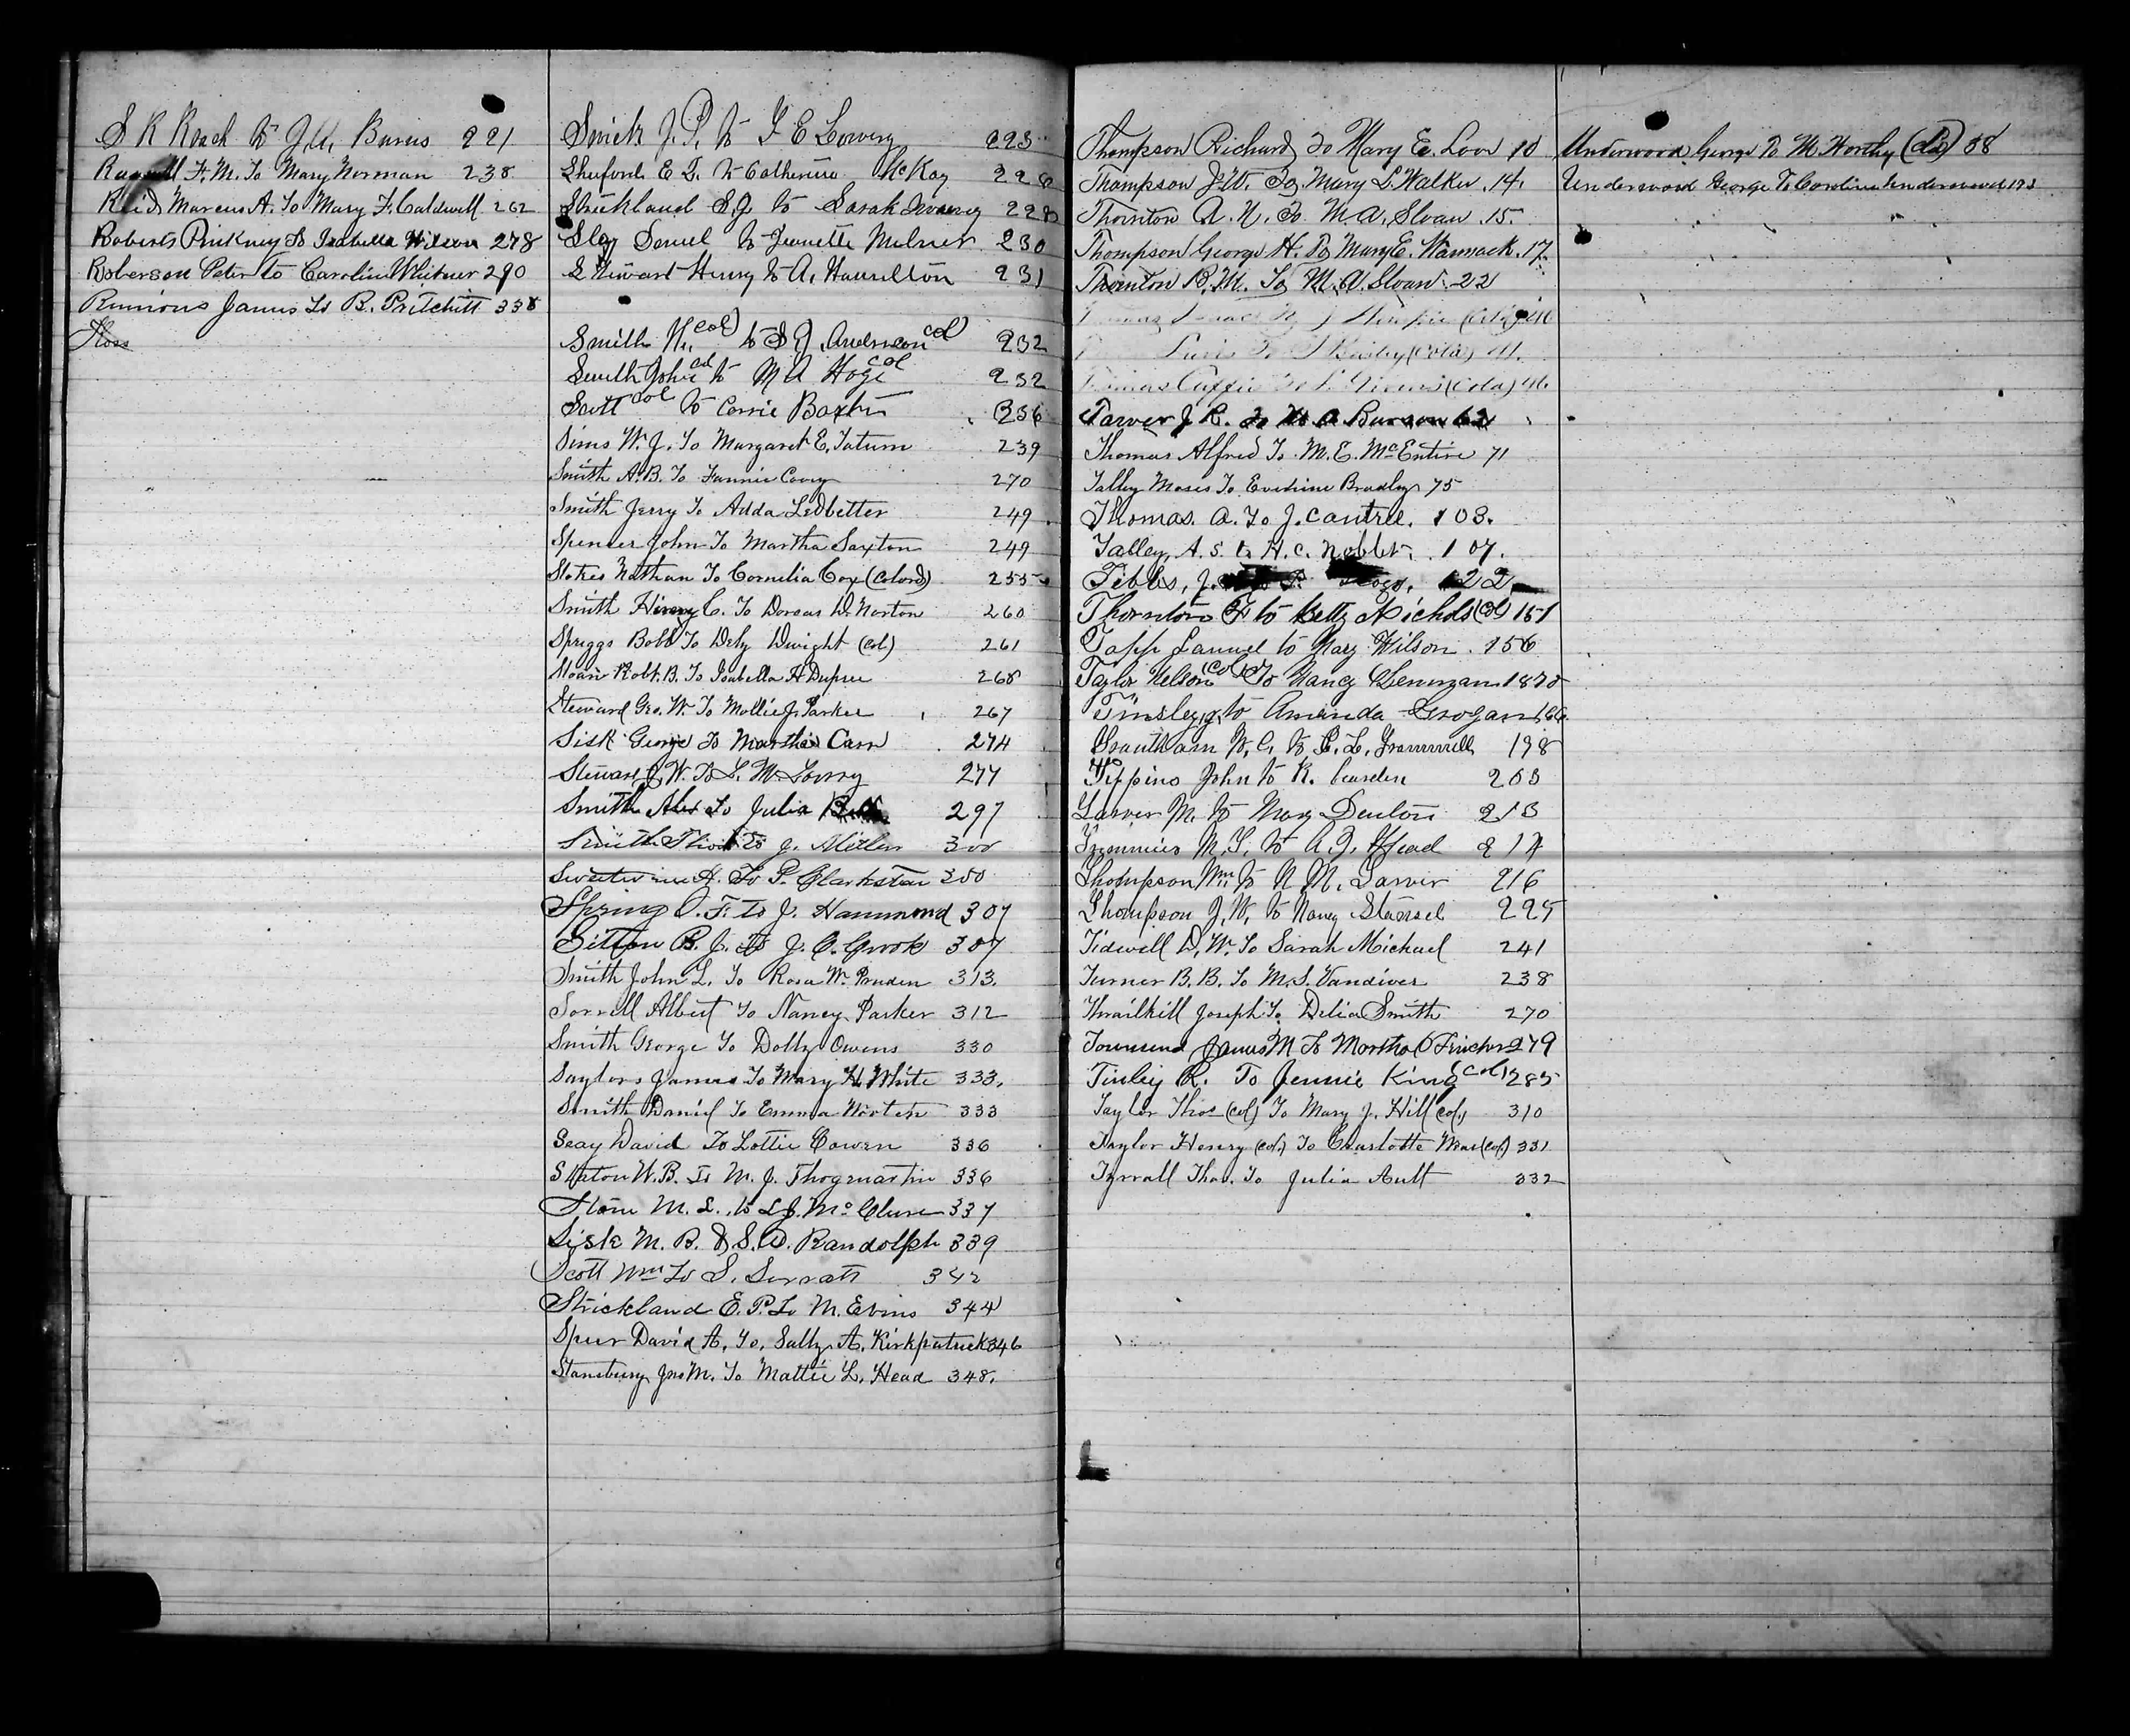 S R Roach to J. A. Burns 221
Russell F. M. To Mary Norman 238
Reid Marcus A. To Mary F. Caldwell 262
Roberts Pinkney To Isabella Wilson 278
Roberson Peter to Caroline Whitner 290
Runions James To B. Pritchitt 338
Smith J. P. to E Lowery 223
Shuford E to Catherine McKay 228
Strickland S. J. to Sarah 228
Samuel to Jeanette Milner 230
Stewart Henry to A. Hamilton 231
Smith (Col) to S. J. Anderson col 232
Smith John col to M A Hoge col 232
Scott col to Corrie Baxter 236
Sims W. J. To Margaret E. Tatum 239
Smith A. B. To Fannie 270
Smith Jerry To Adda Ledbetter 249
Spencer John To Martha Saxton 249
Stokes Nathan To Cornelia Cox (Colord) 255
Smith Henry C. To Dorcas D. Norton 260
Spriggs Bob To Dwight (Col.) 261
Robt. B. To Isabella H Dupree 268
Steward Geo. W. To Mollie J. Parker 267
Sisk George To Martha Carr 274
Stewart J. W. To L. M. Lowry 277
Smith Alex To Julia 297
Smith to J. Miller 300
A. To P. Clarkston 300
Spring O. F. to J. Hammond 307
Sitton B. J. to J. C. Crook 307
Smith John L. To Rosa W. Pruden 313.
Sorrell Albert To Nancy Parker 312
Smith George To Dolly Owens 330
Saylors James To Mary H. White 333.
Smith Daniel To Emma Worten 333
Seay David To Lottie Cowen 336
W. B. To M. J. Thogmartin 336
Stone M. L. to L J. McClure 337
Sisk M. B. & S. A. Randolph 339
Scott Wm To S. Surratt 342
Strickland E. P. To M. Evins 344
Speer David A. To. Sally A. Kirkpatrick 346
Stansbury Jno M. To Mattie L. Head 348.
Thompson Richard To Mary E. 10
Thompson J. W. To Mary L. Walker. 14.
Thornton A. N. To M. A. Sloan. 15.
Thompson George H. To Mary E. Wammack. 17.
Thornton R. M. To M. A. Sloan. 22
Tarver J. R. 62
Thomas Alfred To M. E. McEntire 71
Talley Moses To Eveline Bradley 75
Thomas. A. To J. Cantrell. 103.
Talley, A. S. to H. C. Noblet. 107.
Tibbs, J. 122
Thornton F to Betty Nichols (Col) 151
Tapp Samuel to Mary Wilson. 156
Taylor Nelson (Col) To Nancy
Tinsley, J. to Amanda Grogan 166
W. C. to L. L. 198
Tippins John to R. Carden 203
Tarver M. to Mary Denton 213
M. to A. J. Head 214
Thompson Wm. to N M. Tarver 216
Thompson J. W. to Nancy Stansel 225
Tidwell D. W. To Sarah Michael 241
Turner B. B. To M. S. Vandiver 238
Thrailkill Joseph To Delia Smith 270
Townsend James M To Martha O Fincher 279
Tinley R. To Jennie King (Col) 285
Taylor Thos (Col) To Mary J. Hill (Col.) 310
Taylor Henry (Col.) To Charlotte (Col) 331
Tyrrall Thos. To Julia Ault 332
Underwood George To M. Worthy 38
Underwood George To Caroline Underwood 193